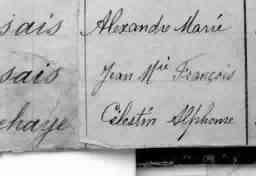 sais Alexandre Marie
sais Jean Mie François
ehaye Célestin Alphonse